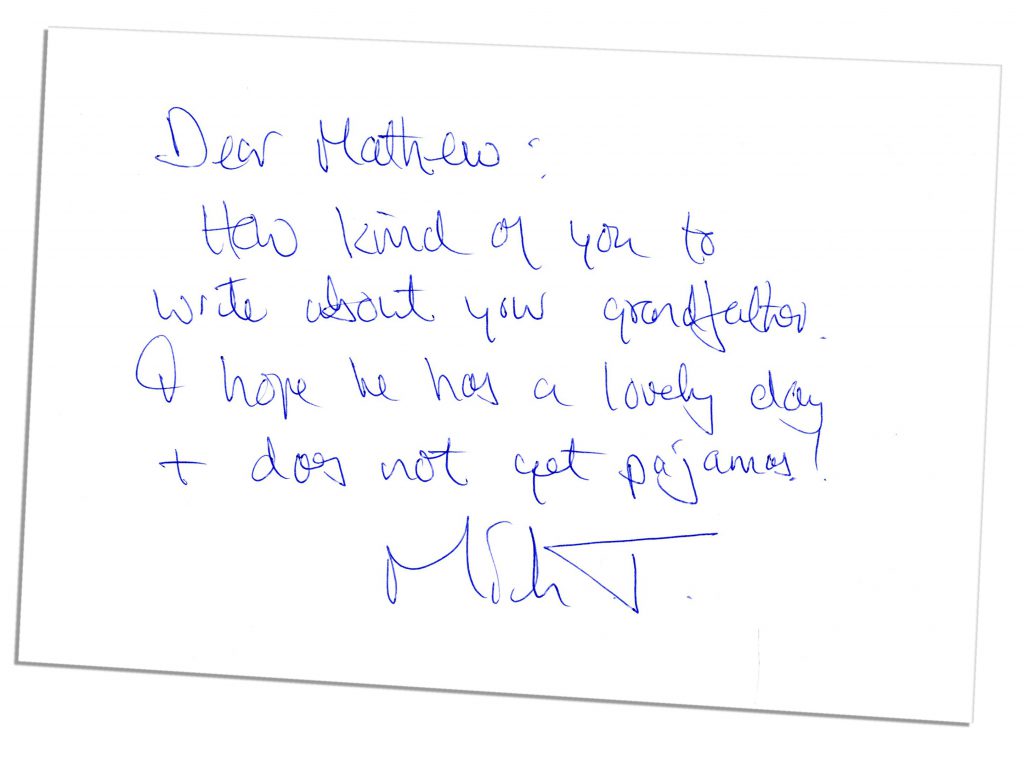 Dear Mathew:
How kind of you to
write about your grandfather.
I hope he has a lovely day
+ does not get pajamas!